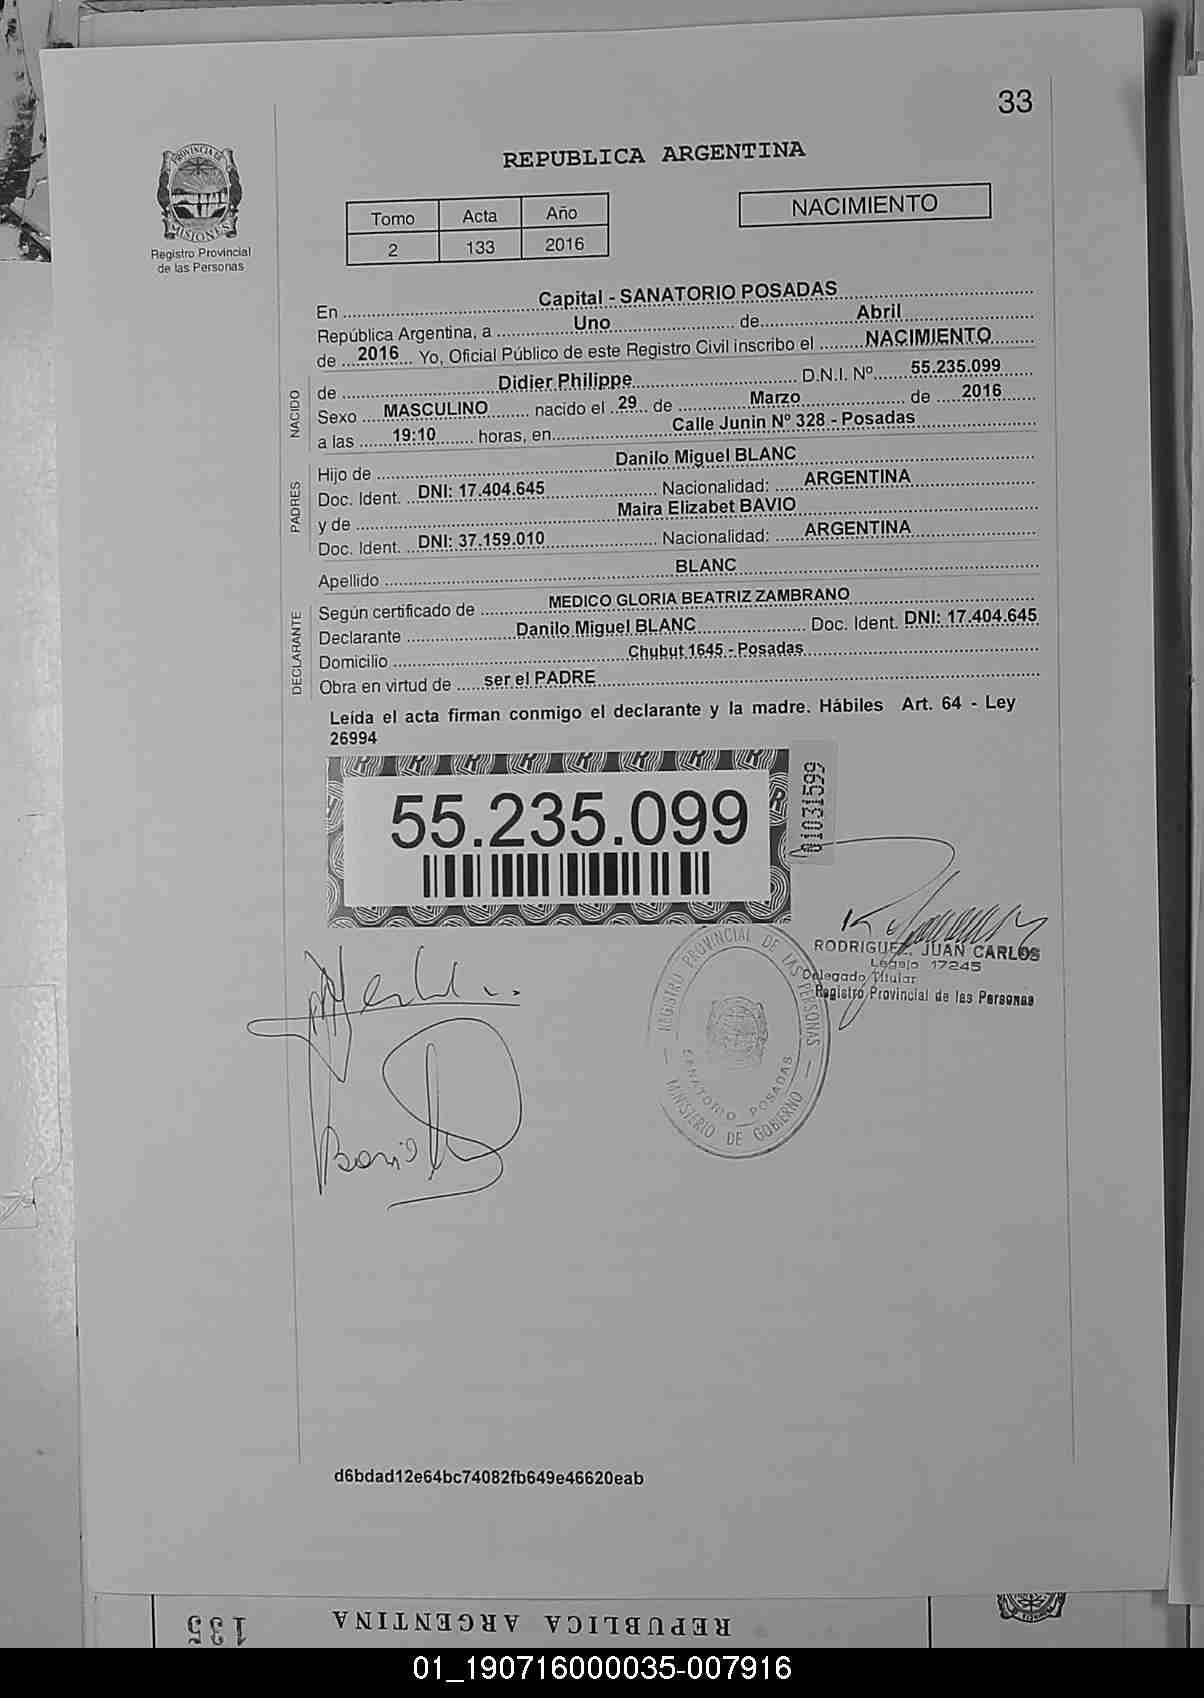 33
PROVINCIA DE
MISIONES
Registro Provincial
de las Personas
REPUBLICA ARGENTINA
Tomo Acta Año
2 133 2016
NACIMIENTO
En Capital - SANATORIO POSADAS
República Argentina, a Uno de Abril
de 2016 Yo, Oficial Público de este Registro Civil inscribo el NACIMIENTO
NACIDO
de Didier Philippe D.N.I. Nº 55.235.099
Sexo MASCULINO nacido el 29 de Marzo de 2016
a las 19:10 horas, en Calle Junin Nº 328 - Posadas
PADRES
Hijo de Danilo Miguel BLANC
Doc. Ident. DNI: 17.404.645 Nacionalidad: ARGENTINA
y de Maira Elizabet BAVIO
Doc. Ident. DNI: 37.159.010 Nacionalidad: ARGENTINA
Apellido BLANC
DECLARANTE
Según certificado de MEDICO GLORIA BEATRIZ ZAMBRANO
Declarante Danilo Miguel BLANC Doc. Ident. DNI: 17.404.645
Domicilio Chubut 1645 - Posadas
Obra en virtud de ser el PADRE
Leída el acta firman conmigo el declarante y la madre. Hábiles Art. 64 - Ley
26994
55.235.099
01031599
RODRIGUEZ, JUAN CARLOS
Legajo 17245
Delegado Titular
Registro Provincial de las Personas
REGISTRO PROVINCIAL DE LAS PERSONAS
SANATORIO POSADAS
MINISTERIO DE GOBIERNO
d6bdad12e64bc74082fb649e46620eab
REPUBLICA ARGENTINA
135
01_190716000035-007916